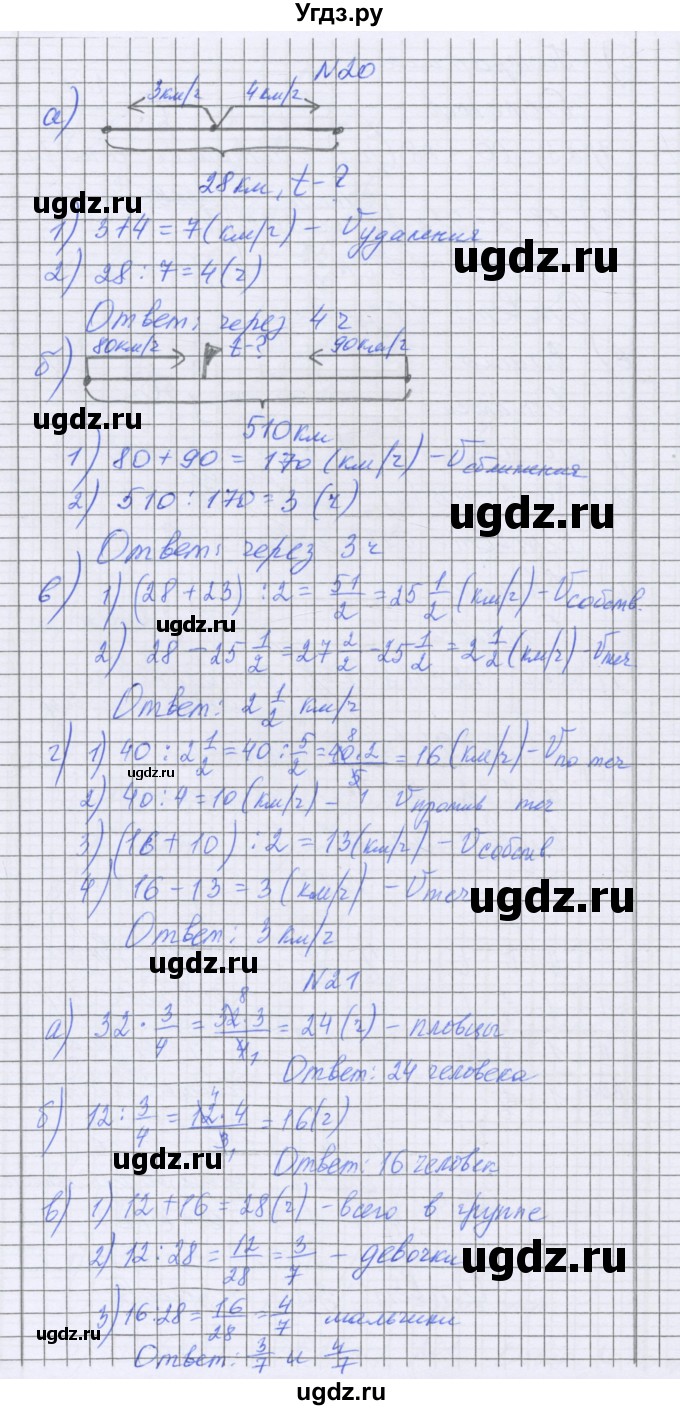 Угдз.ру
N20
а) 3км/г 4км/г
28км, t-?
ugdz.ru
1) 3+4=7(км/ч) - Vудаления
ugdz.ru
2) 28:7=4(ч)
Ответ: через 4ч
б) 80км/ч t-? 90км/ч
ugdz.ru
510км
1) 80+90=170 (км/ч) - Vсближения
2) 510:170=3 (ч)
ugdz.ru
Ответ: через 3ч
в) 1) (28+23):2=51/2=25 1/2 (км/ч) - Vсобств.
ugdz.ru
2) 28-25 1/2=27 2/2-25 1/2=2 1/2 (км/ч) - Vтеч
Ответ: 2 1/2 км/ч
г) 1) 40:2 1/2=40:5/2=40·2/5=16(км/ч) - Vпо теч
ugdz.ru
2) 40:4=10(км/ч) - Vпротив теч
3) (16+10):2=13(км/ч) - Vсобств.
4) 16-13=3(км/ч) - Vтеч
ugdz.ru
Ответ: 3км/г
ugdz.ru
N21
а) 32·3/4=32·3/4=24(ч) - пловцы
Ответ: 24 человека
б) 12:3/4=12·4/3=16(ч)
ugdz.ru
Ответ: 16 человек
в) 1) 12+16=28(ч) - всего в группе
2) 12:28=12/28=3/7 - девочки
ugdz.ru
3) 16:28=16/28=4/7 мальчики
ugdz.ru
Ответ: 3/7 и 4/7
ugdz.ru